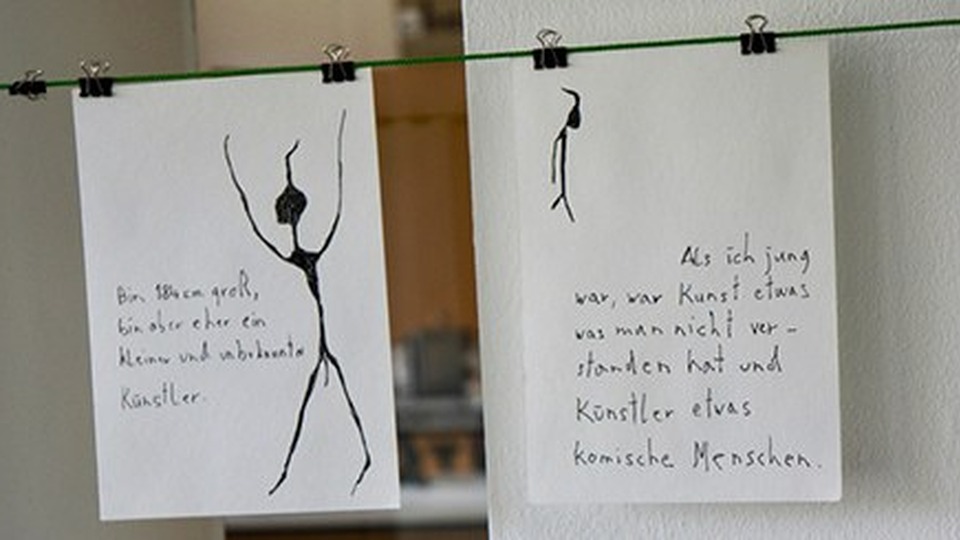 Bin 184 cm groß,
bin aber eher ein
kleiner und unbekannter
Künstler.
Als ich jung
war, war Kunst etwas
was man nicht ver-
standen hat und
Künstler etwas
komische Menschen.